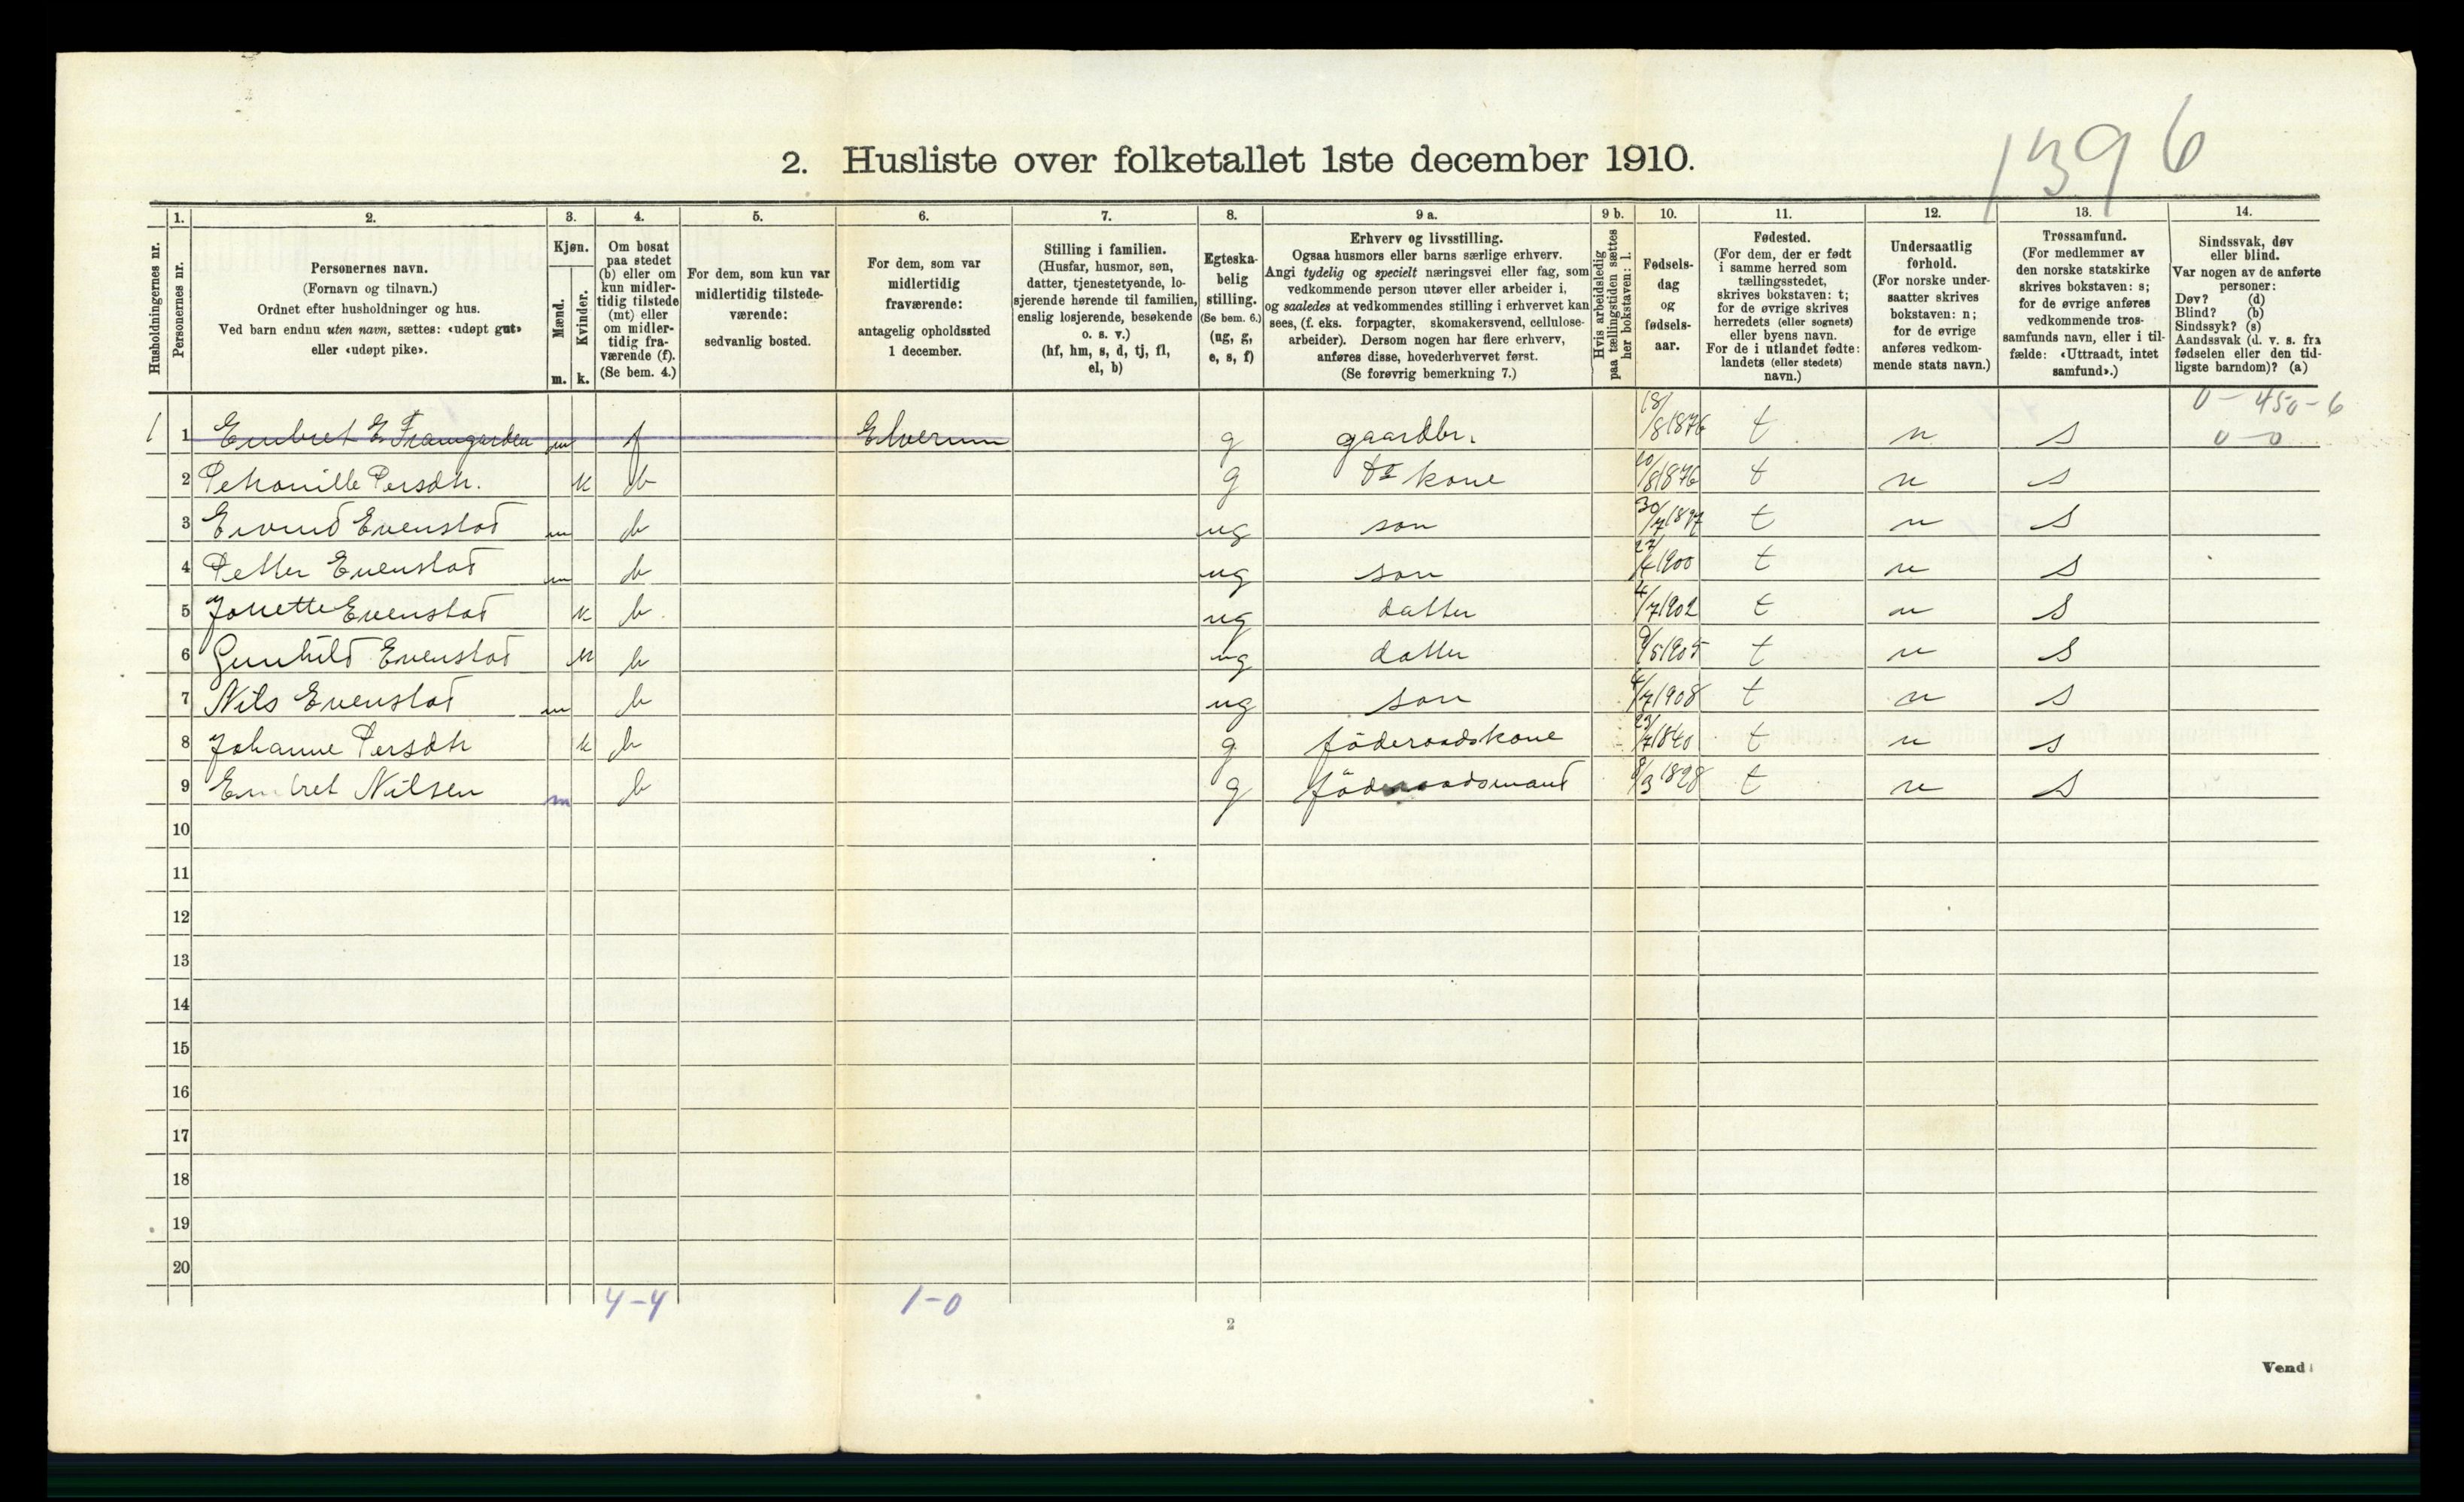 1396
2. Husliste over folketallet 1ste december 1910.
Husholdningernes nr.
1.
Personernes nr.
2.
Personernes navn.
(Fornavn og tilnavn.)
Ordnet efter husholdninger og hus.
Ved barn endnu uten navn, sættes: «udøpt gut»
eller «udøpt pike».
3.
Kjøn.
Mænd.
Kvinder.
m. k.
4.
Om bosat
paa stedet
(b) eller om
kun midler-
tidig tilstede
(mt) eller
om midler-
tidig fra-
værende (f).
(Se bem. 4.)
5.
For dem, som kun var
midlertidig tilstede-
værende:
sedvanlig bosted.
6.
For dem, som var
midlertidig
fraværende:
antagelig opholdssted
1 december.
7.
Stilling i familien.
(Husfar, husmor, søn,
datter, tjenestetyende, lo-
sjerende hørende til familien,
enslig losjerende, besøkende
o. s. v.)
(hf, hm, s, d, tj, fl,
el, b)
8.
Egteska-
belig
stilling.
(Se bem. 6.)
(ug, g,
e, s, f)
9 a.
Erhverv og livsstilling.
Ogsaa husmors eller barns særlige erhverv.
Angi tydelig og specielt næringsvei eller fag, som
vedkommende person utøver eller arbeider i,
og saaledes at vedkommendes stilling i erhvervet kan
sees, (f. eks. forpagter, skomakersvend, cellulose-
arbeider). Dersom nogen har flere erhverv,
anføres disse, hovederhvervet først.
(Se forøvrig bemerkning 7.)
9 b.
Hvis arbeidsledig
paa tællingstiden sættes
her bokstaven: l.
10.
Fødsels-
dag
og
fødsels-
aar.
11.
Fødested.
(For dem, der er født
i samme herred som
tællingsstedet,
skrives bokstaven: t;
for de øvrige skrives
herredets (eller sognets)
eller byens navn.
For de i utlandet fødte:
landets (eller stedets)
navn.)
12.
Undersaatlig
forhold.
(For norske under-
saatter skrives
bokstaven: n;
for de øvrige
anføres vedkom-
mende stats navn.)
13.
Trossamfund.
(For medlemmer av
den norske statskirke
skrives bokstaven: s;
for de øvrige anføres
vedkommende tros-
samfunds navn, eller i til-
fælde: «Uttraadt, intet
samfund».)
14.
Sindssvak, døv
eller blind.
Var nogen av de anførte
personer:
Døv? (d)
Blind? (b)
Sindssyk? (s)
Aandssvak (d. v. s. fra
fødselen eller den tid-
ligste barndom)? (a)
0 - 450 - 6
0 - 0
1 1 Embret E Framgarden m f Elverum g gaardbr. 18/8 1876 t n s
2 Petronille Persdtr. k b g do kone 10/8 1876 t n s
3 Eivind Evenstad m b ug søn 30/7 1897 t n s
4 Petter Evenstad m b ug søn 27/4 1900 t n s
5 Jonette Evenstad k b ug datter 4/7 1902 t n s
6 Gunhild Evenstad k b ug datter 9/5 1905 t n s
7 Nils Evenstad m b ug søn 4/7 1908 t n s
8 Johanne Persdtr k b g föderaadskone 23/7 1840 t n s
9 Embret Nilsen m b g föderaadsmand 8/3 1828 t n s
10
11
12
13
14
15
16
17
18
19
20
4-4 1-0
2
Vend